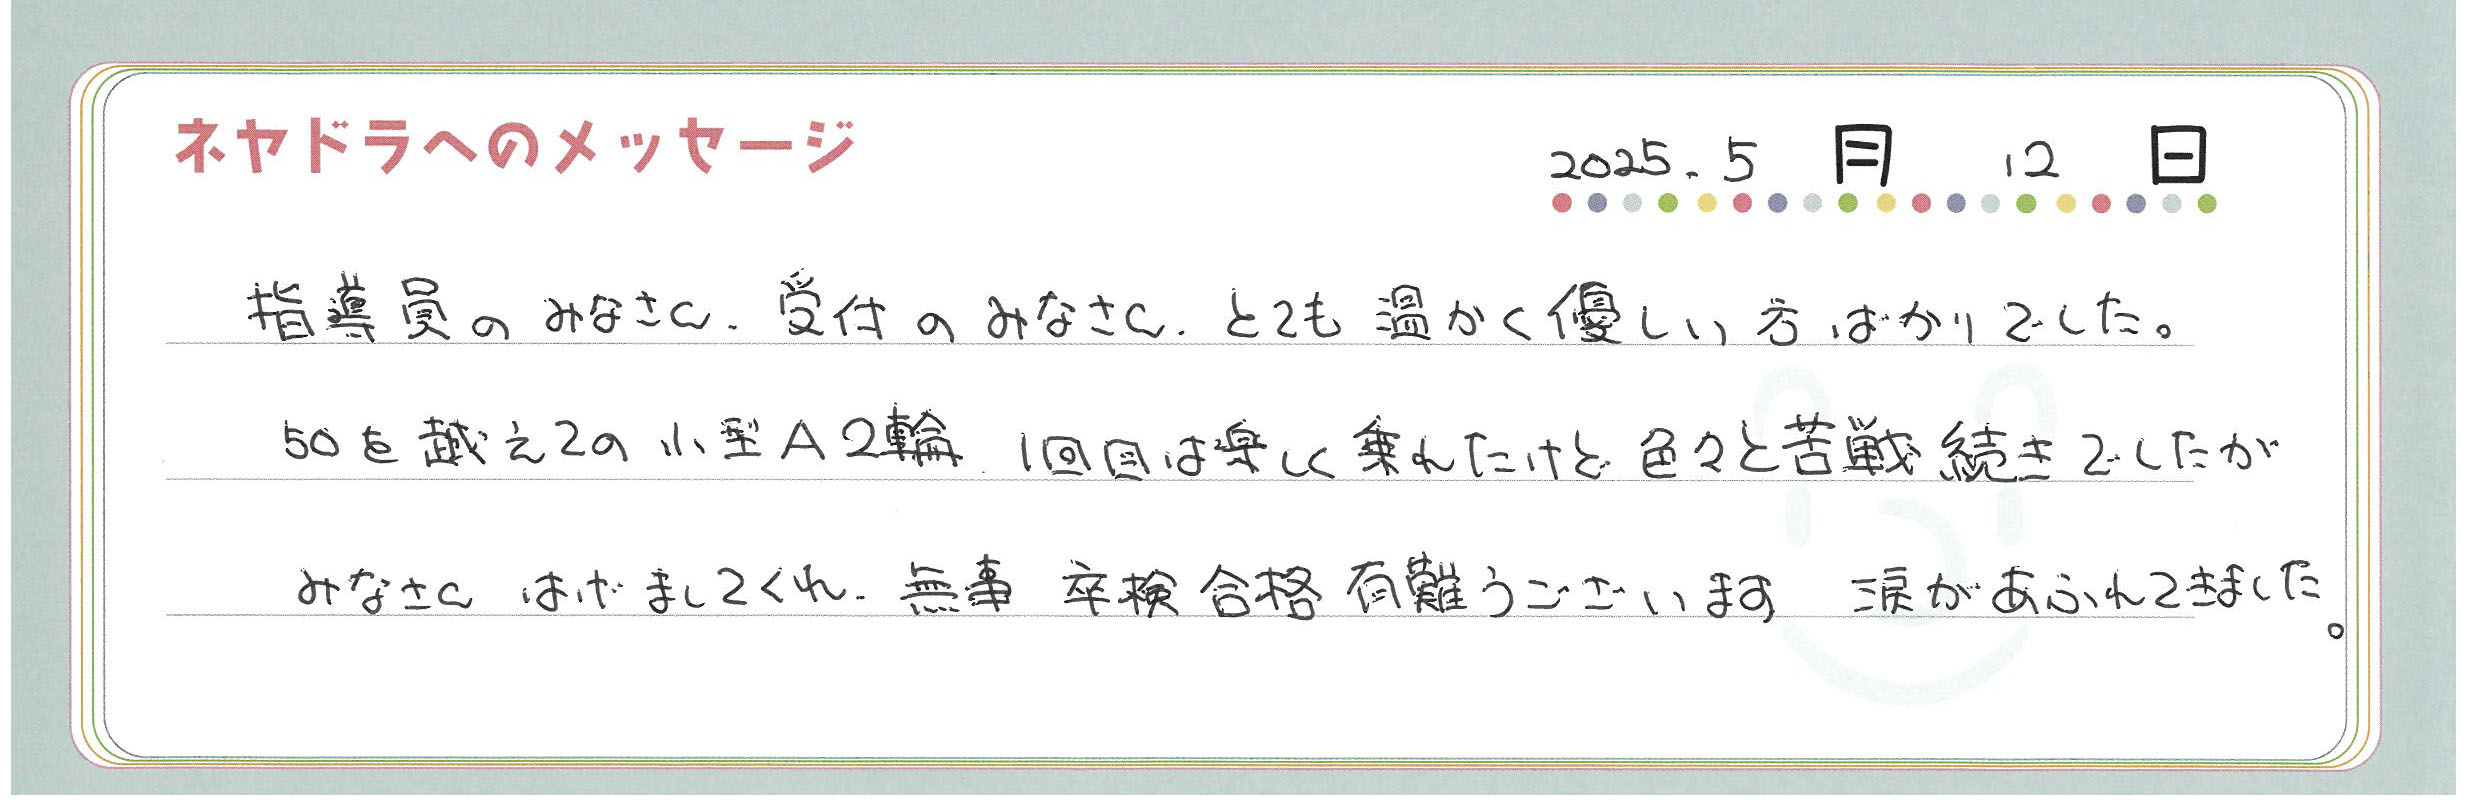 ネヤドラへのメッセージ
2025.5月12日
指導員のみなさん.受付のみなさん.とても温かく優しい方ばかりでした。
50を越えての小型A2輪.1回目は楽しく乗れたけど色々と苦戦続きでしたが
みなさんはげましてくれ.無事 卒検合格有難うございます 涙があふれてきました。